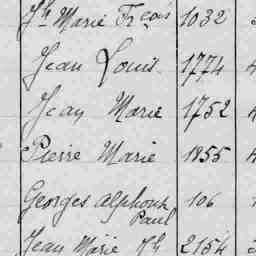 Jh Marie Frçois 1032
Jean Louis 1774
Jean Marie 1752
Pierre Marie 1855
Georges Alphonse 106
Paul
Jean Marie Jh 2154